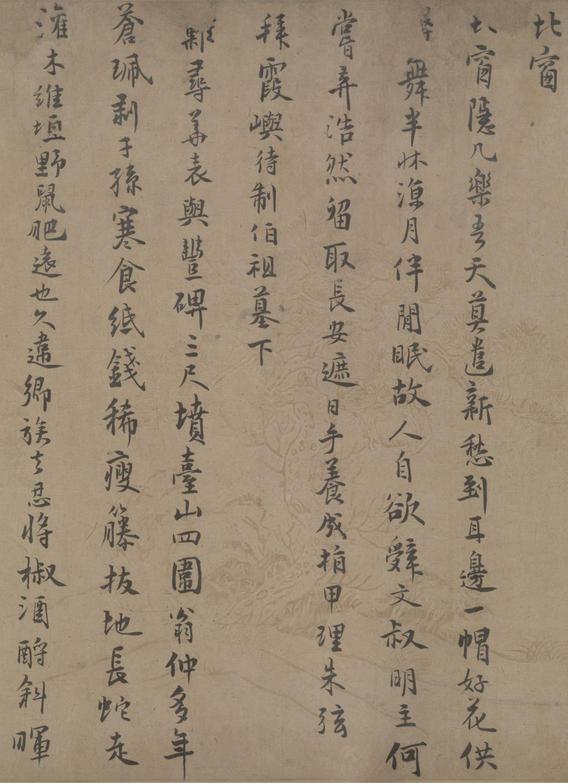 北窗
北窗隱几樂吾天莫遣新愁到耳邊一帽好花供
舞半牀涼月伴閒眠故人自欲辭文叔明主何
嘗弃浩然留取長安遮日手養成指甲理朱弦
拜霞嶼待制伯祖墓下
難尋華表與豐碑三尺墳臺山四圍翁仲多年
蒼珮剥子孫寒食紙錢稀瘦藤拔地長蛇走
灌木維垣野鼠肥遠也久違鄉族去忍將椒酒酹斜暉